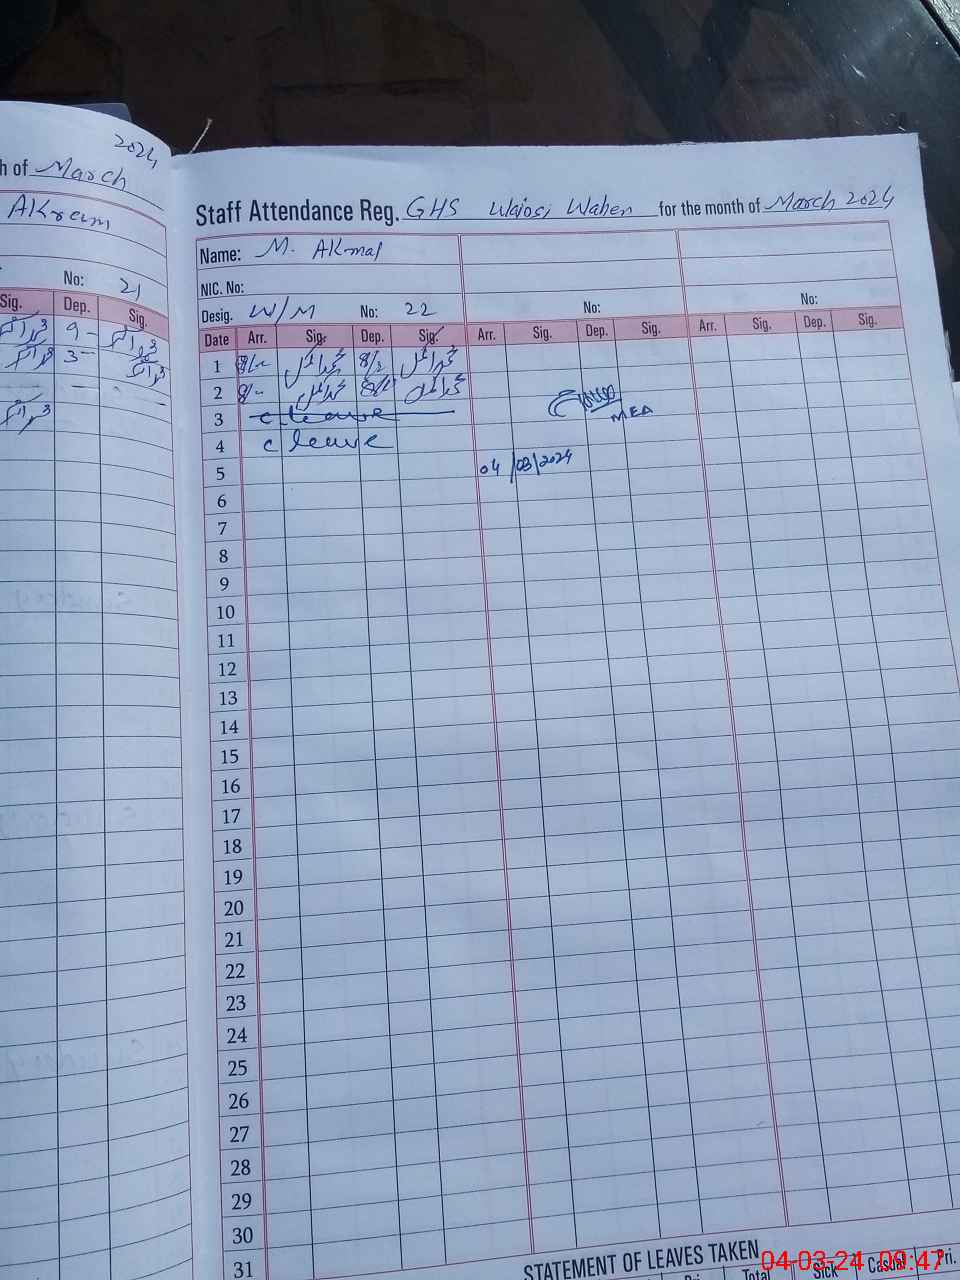 2024
h of March
AKram
No: 21
Sig. Dep. Sig.
9 -
3 -
Staff Attendance Reg. GHS for the month of March 2024
Name: M. AKmal
NIC. No:
Desig. W/M No: 22 No: No:
Date Arr. Sig. Dep. Sig. Arr. Sig. Dep. Sig. Arr. Sig. Dep. Sig.
1
2
3 c leave
MEA
4 c leave
5 04/03/2024
6
7
8
9
10
11
12
13
14
15
16
17
18
19
20
21
22
23
24
25
26
27
28
29
30
31
STATEMENT OF LEAVES TAKEN
Total Sick Casual Pri.
04-03-24 09:47